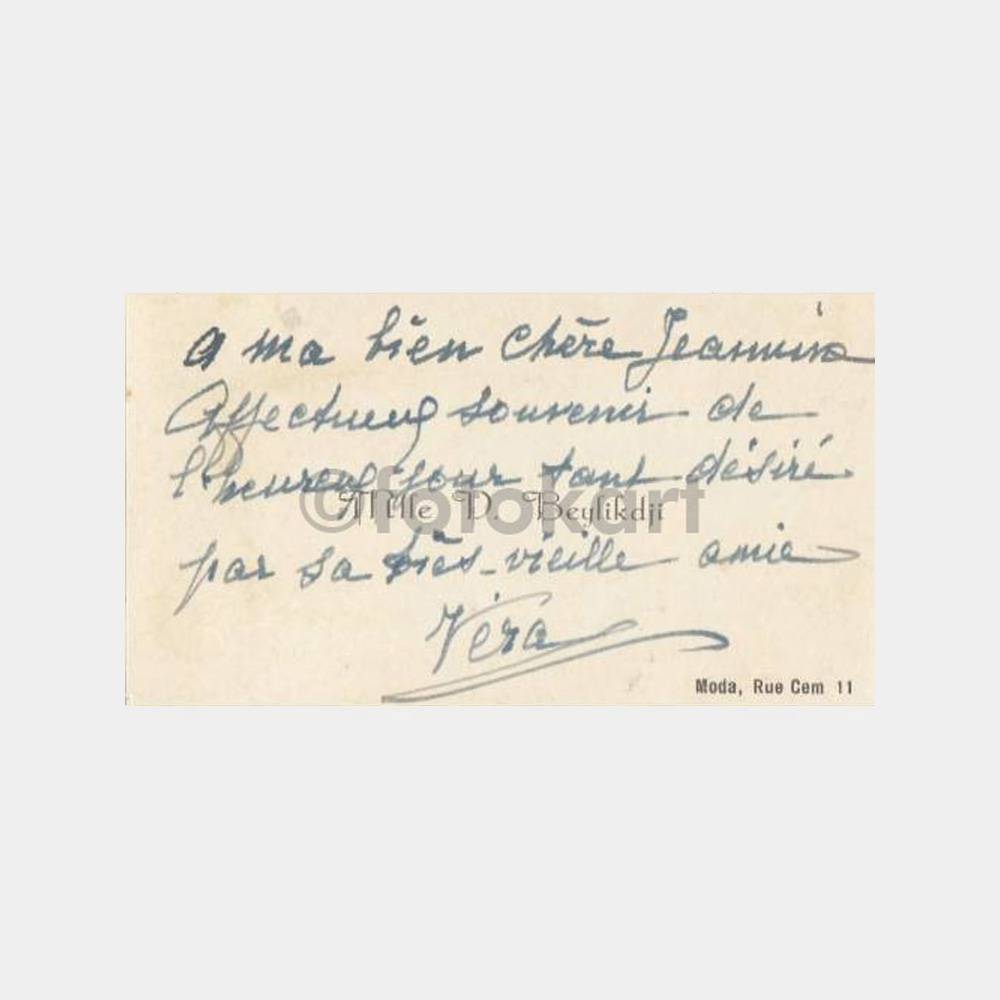 a ma bien chère Jeannine
Affectueux souvenir de
l'heureux jour tant désiré
©fotokart
Mlle V. Beylikdji
par sa très-vieille amie
Véra
Moda, Rue Cem 11